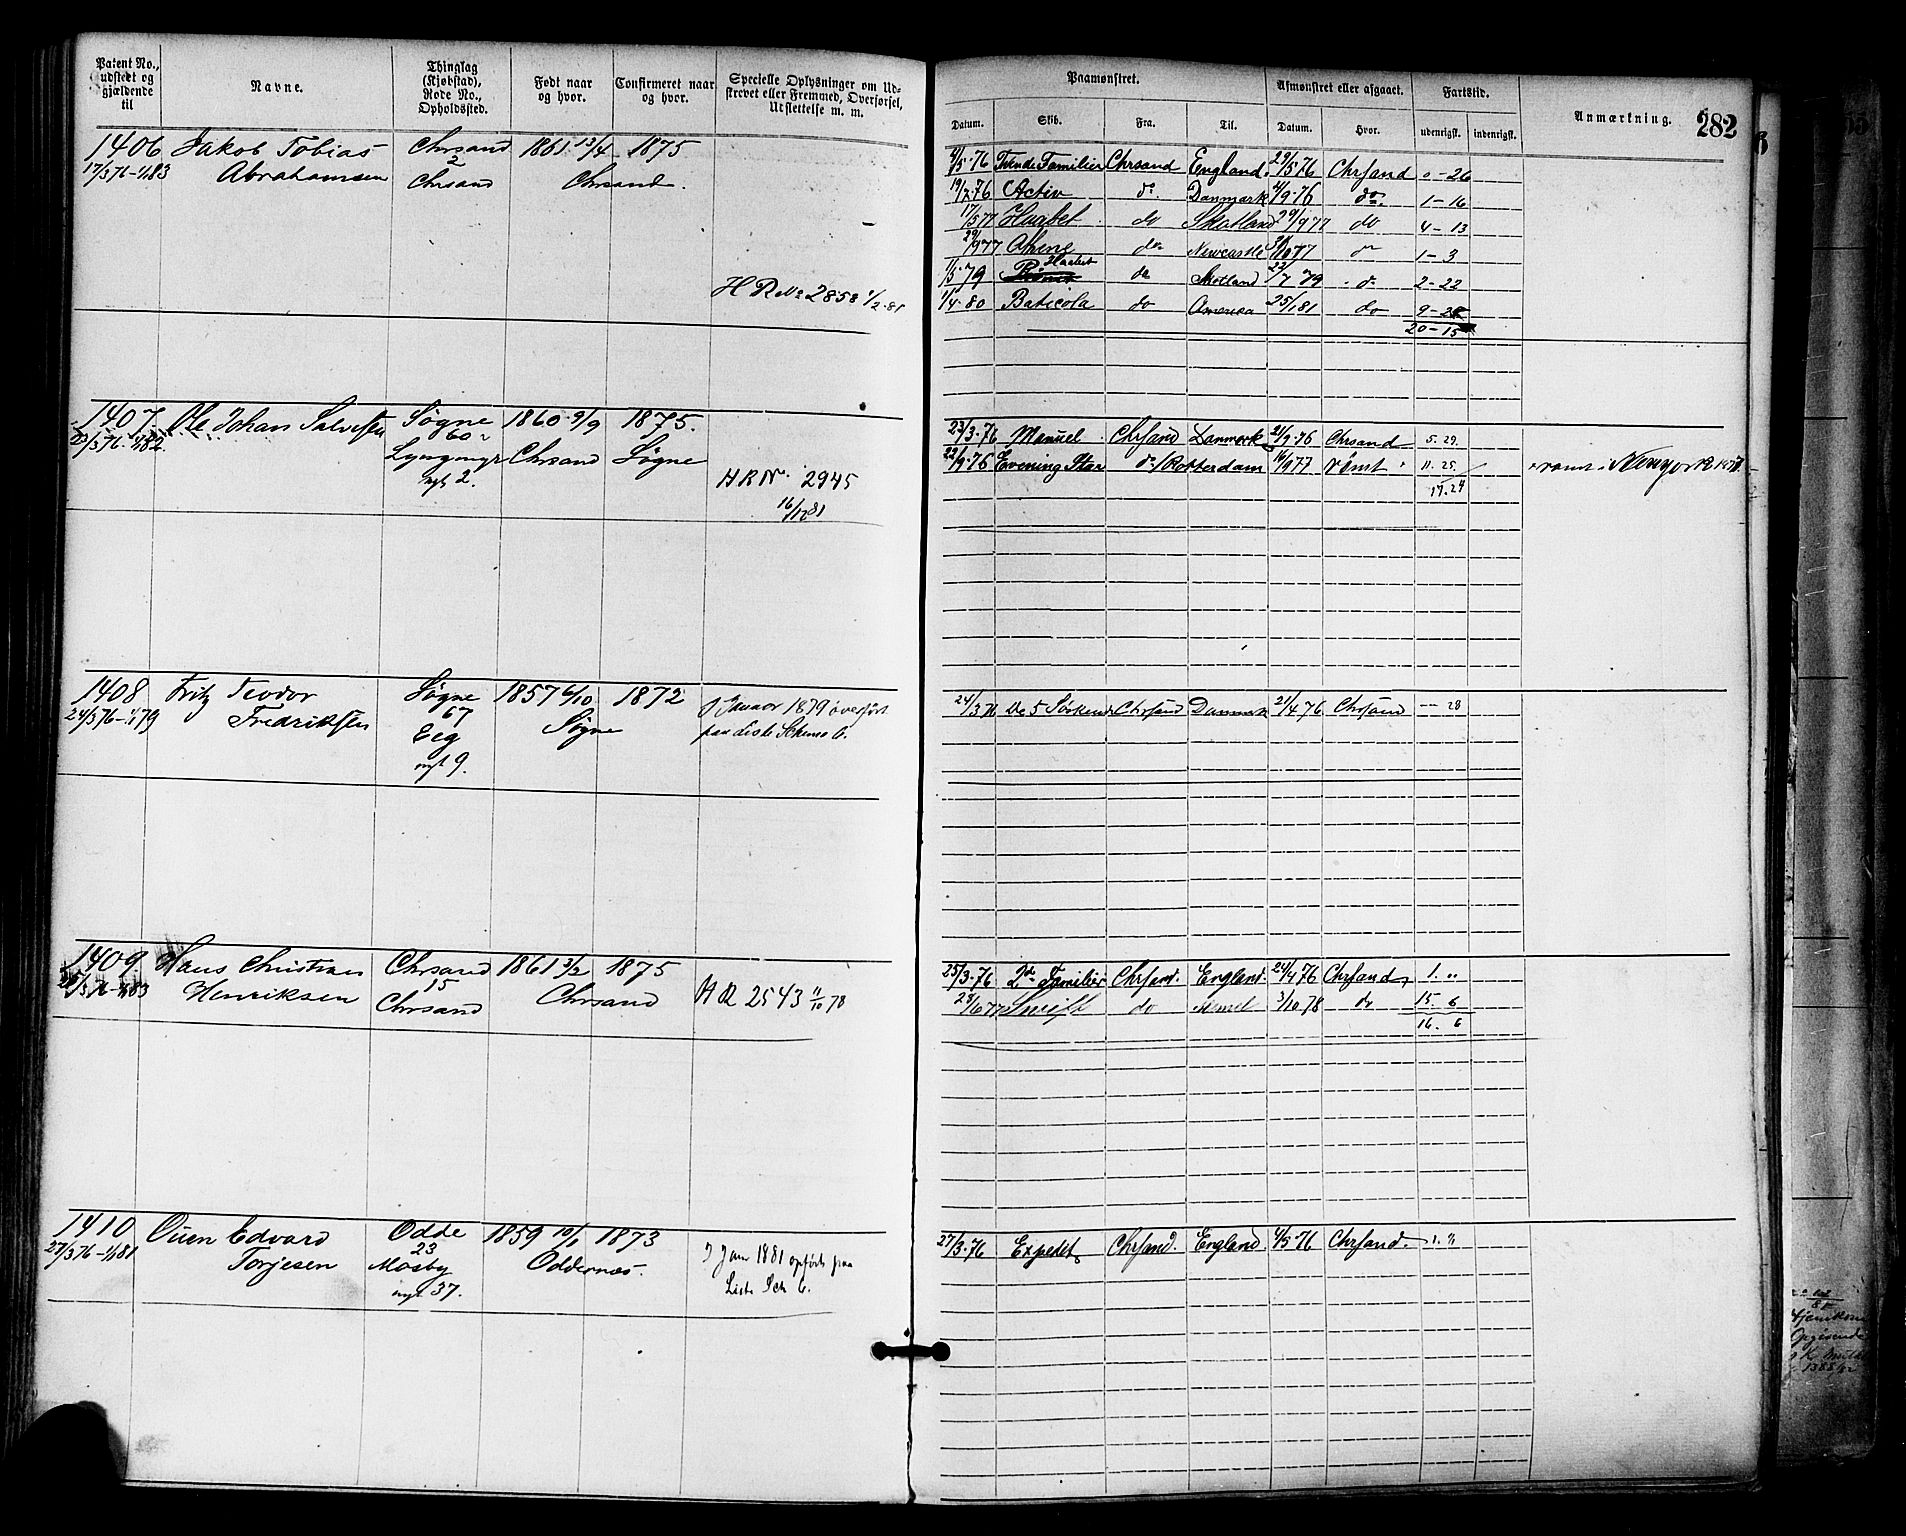 Patent No., udstedt og gjældende til
Navne.
Thinglag (Kjøbstad), Rode No., Opholdssted.
Født naar og hvor.
Confirmeret naar og hvor.
Specielle Oplysninger om Udskrevet eller Fremmed, Overførsel, Udslettelse m. m.
Paamønstret.
Afmønstret eller afgaaet.
Fartstid.
Anmærkning.
282
Datum. Skib. Fra. Til. Datum. Hvor. udenrigsk. indenrigsk.
1406 Jakob Tobias Chrsand 1861 13/4 1875
17/3 76-1/1 83 Abrahamsen 2 Chrsand.
Chrsand
H R No 2858 1/2-81
4/5-76 Familier Chrsand England 29/5 76 Chrsand 0-26
19/7-76 Activ do. Danmark 4/9-76 do. 1-16
17/5 77 Haabet do Skotland 29/9 77 do 4-13
29/9 77 do Newcastle do 1-3
1/5-79 Haabet do Skotland 22/7 79 do 2-22
1/4-80 Baticola do America 25/1 81 do
20-15
1407. Ole Johan Salvesen Søgne 1860 9/9 1875.
23/3 76-1/1 82. 60 Chrsand Søgne
Lyngmyr
nyt 2.
H R No. 2945
16/12 81
23/3-76 Manuel Chrsand Danmark 21/9-76 Chrsand 5. 29.
22/9-76 Evening Star do/Rotterdam 16/9 77 rømt 11. 25.
17. 24
rømt i Newyork 1877.
1408 Fritz Teodor Søgne 1857 6/10 1872
24/3 76-1/1 79 Fredriksen 67 Søgne
Eeg
nyt 9.
I Januar 1879 overført
paa Liste Schema 6.
24/3 76 De 5 Søskende Chrsand Danmark 21/4 76 Chrsand -- 28
1409. Hans Christian Chrsand 1861 3/2 1875
25/3 76-1/1 83 Henriksen 15 Chrsand
Chrsand
H R 2543 11/10 78
25/3-76 2de Familier Chrsand. England. 24/4 76 Chrsand, 1. "
28/6 77 Swift do Memel 3/10 78 do 15. 6
16. 6
1410 Ouen Edvard Odde 1859 10/1 1873
27/3 76-1/1 81 Torjesen 23 Oddernæs.
Mosby
nyt 37.
I Jan 1881 opført paa
Liste Sch 6.
27/3-76 Expedit Chrsand. England 4/5-76 Chrsand. 1. "